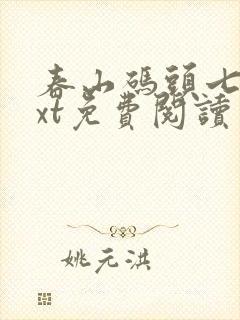 春山碼頭七
xt免費閱讀
姚元淇